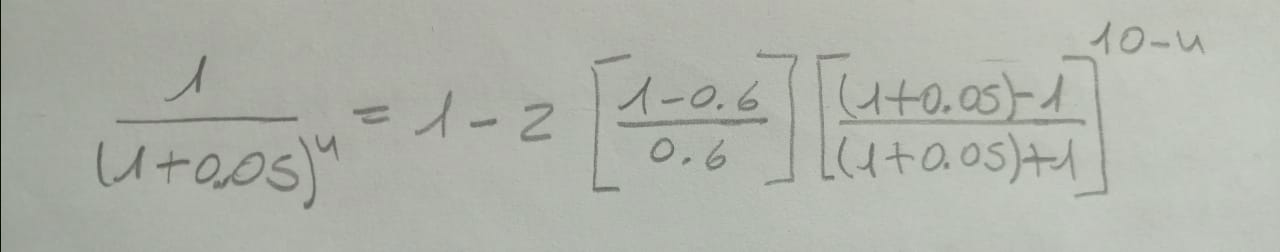 \frac{1}{(1+0.05)^4} = 1 - z \left[\frac{1-0.6}{0.6}\right] \left[\frac{(1+0.05)-1}{(1+0.05)+1}\right]^{10-4}